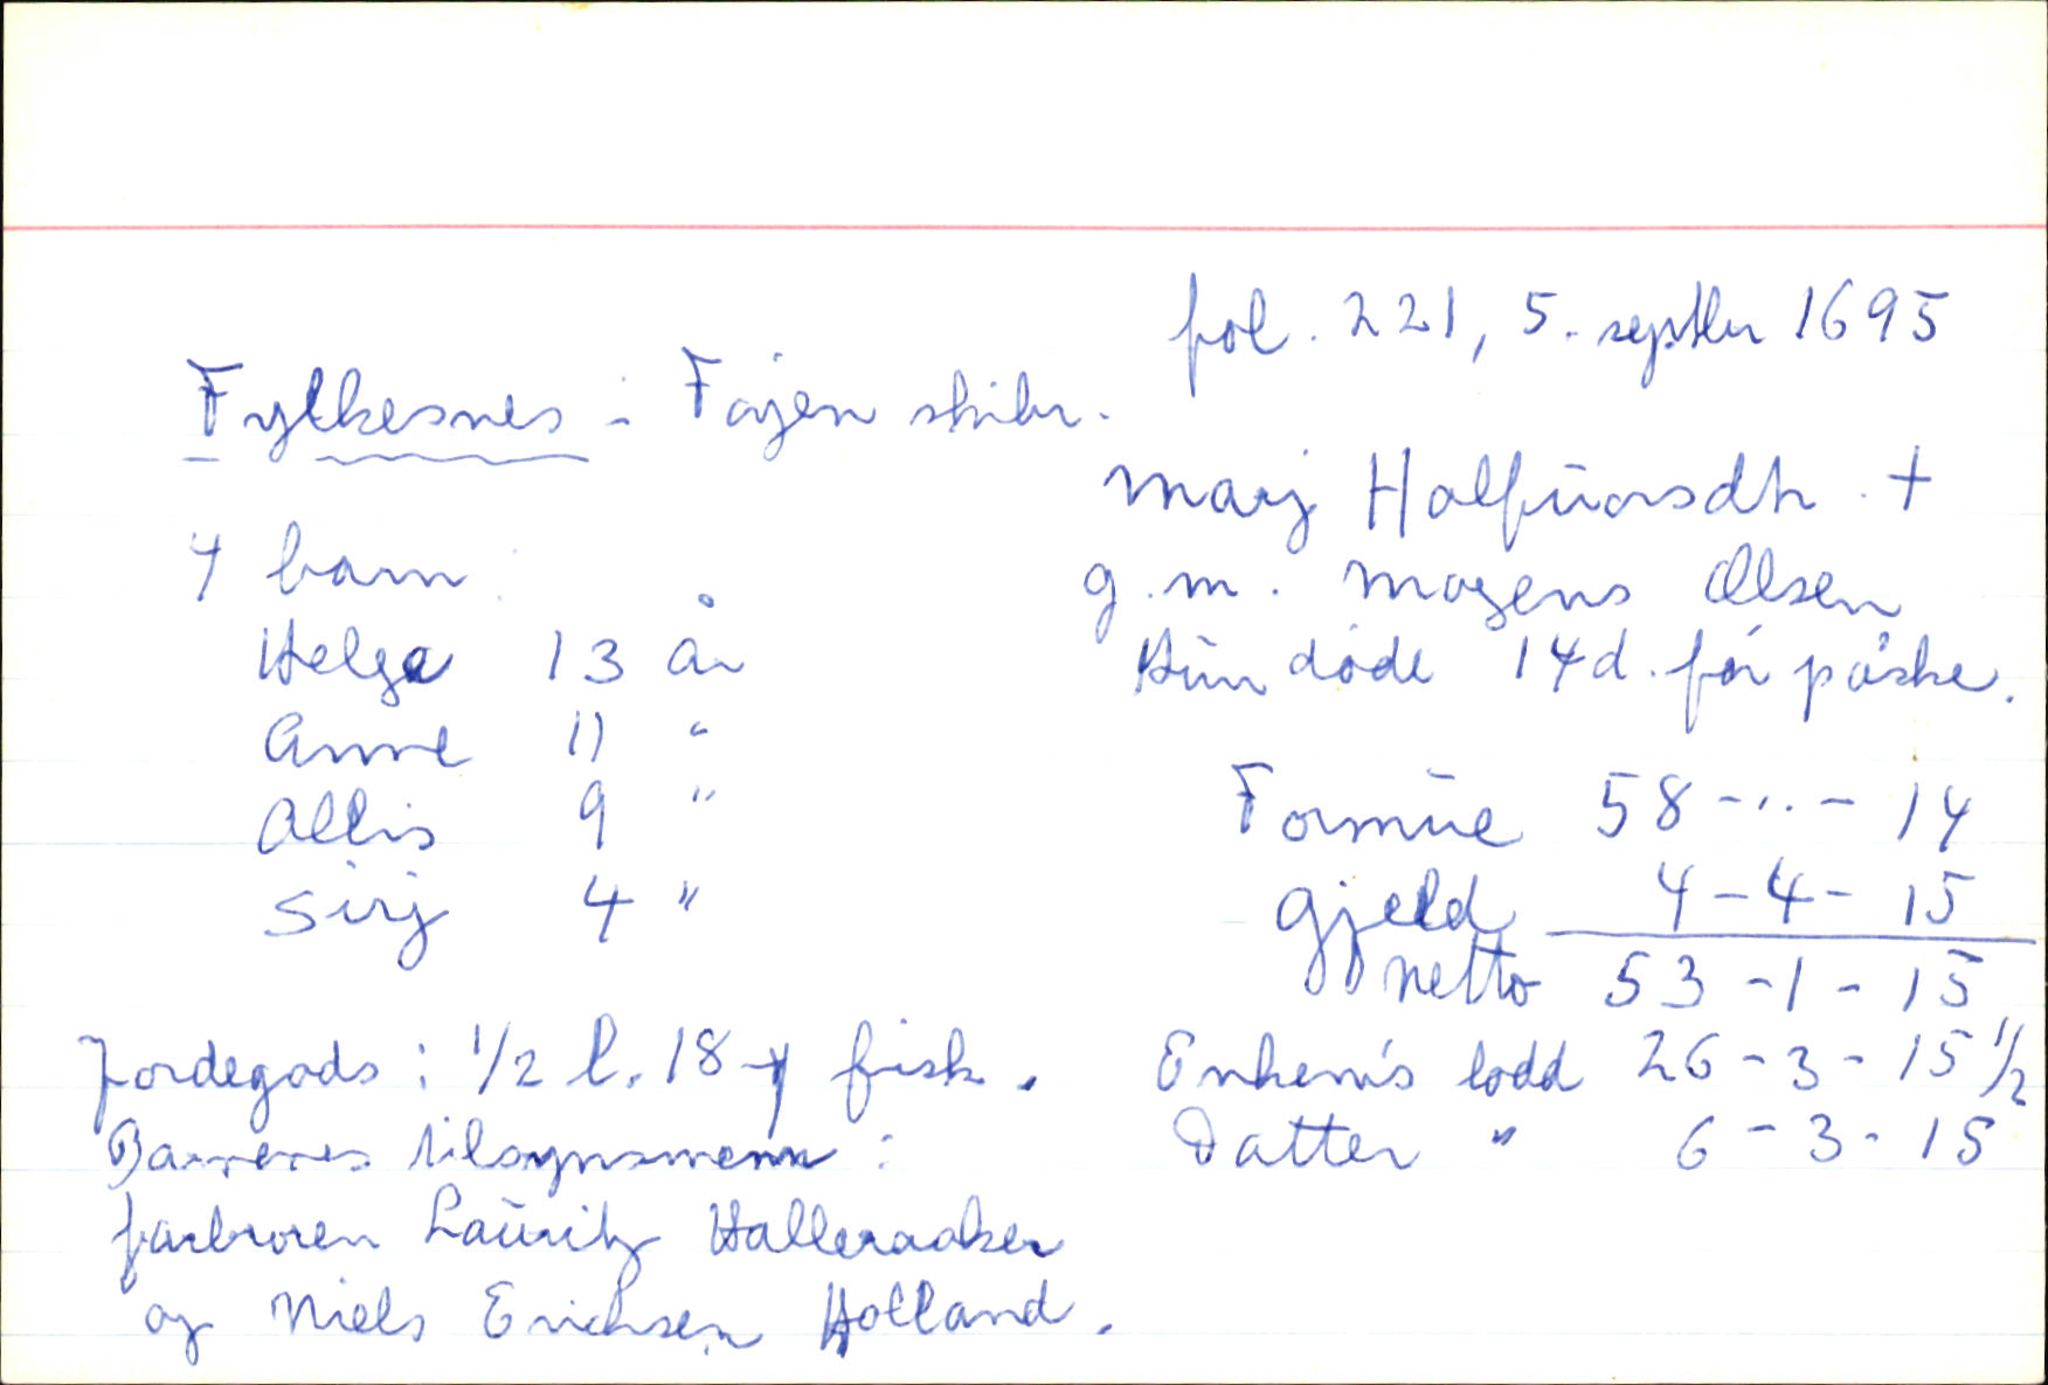 fol. 221, 5. septbr 1695
Fylkesnes - Føyen skibr.
Marj Halfüorsdtr. +
g.m. Mogens Olsen
Hün døde 14 d. før påske.
4 barn:
Helga 13 år
Anne 11 "
Allis 9 "
Sirj 4 "
Formüe 58 - .. - 14
Gjeld 4 - 4 - 15
Netto 53 - 1 - 15
Enkem's lodd 26 - 3 - 15 1/2
Datter " 6 - 3 - 15
Jordegods: 1/2 l. 18 fisk.
Barnenes tilsynsmenn:
farbroren Laüritz Halleraaker
og Niels Erichsen Holland.